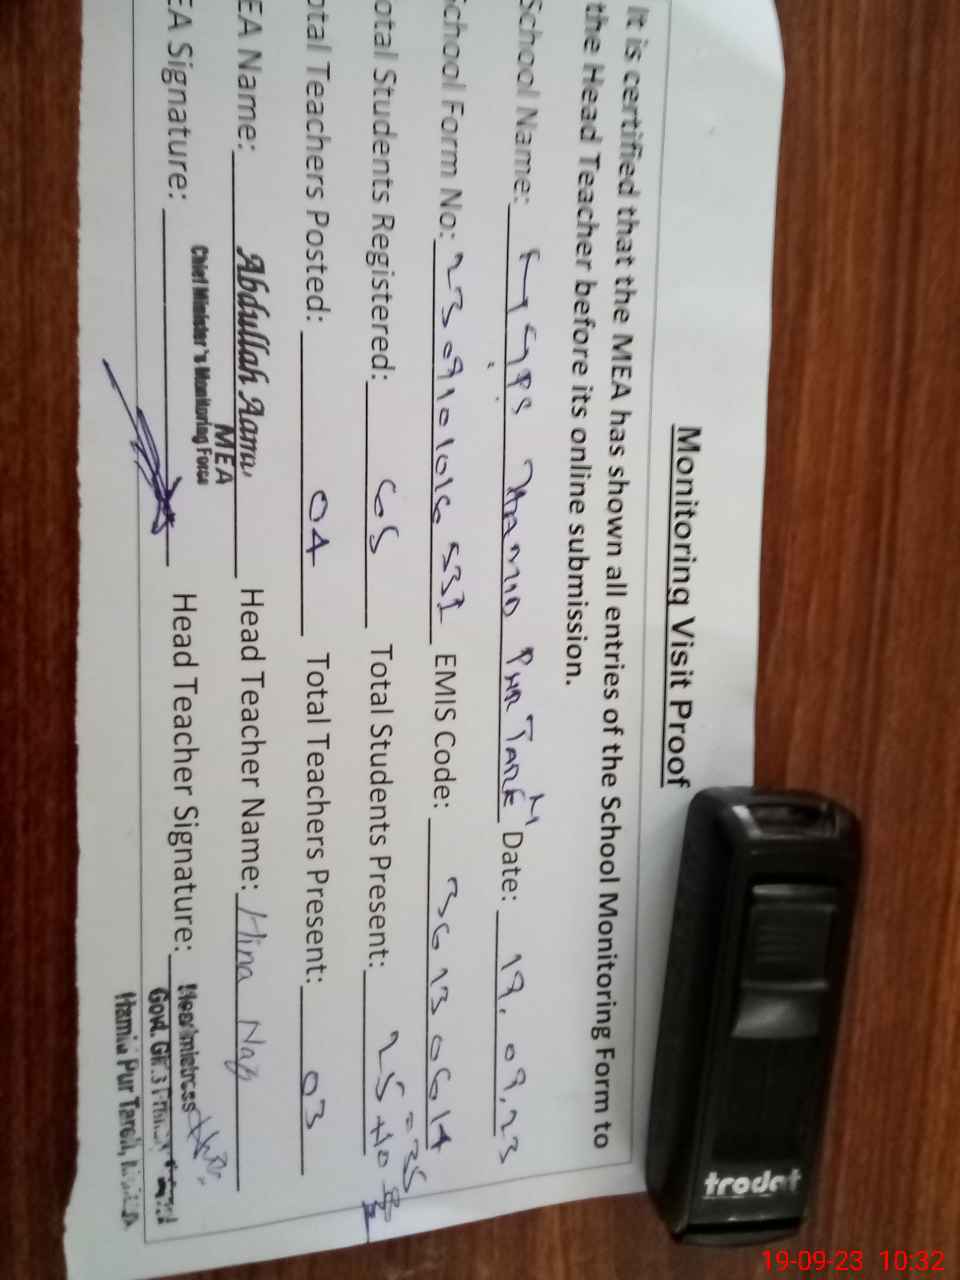 Monitoring Visit Proof
It is certified that the MEA has shown all entries of the School Monitoring Form to
the Head Teacher before its online submission.
School Name: GGPS Date: 19.09.23
School Form No: EMIS Code: 36130614
otal Students Registered: 65 Total Students Present: 25+10 =35
otal Teachers Posted: 04 Total Teachers Present: 03
EA Name: Abdullah Head Teacher Name: Hina Naz
MEA
Chief Minister's Monitoring Force
EA Signature: Head Teacher Signature:
Headmistress
Govt.
Pur
trodat
19-09-23 10:32